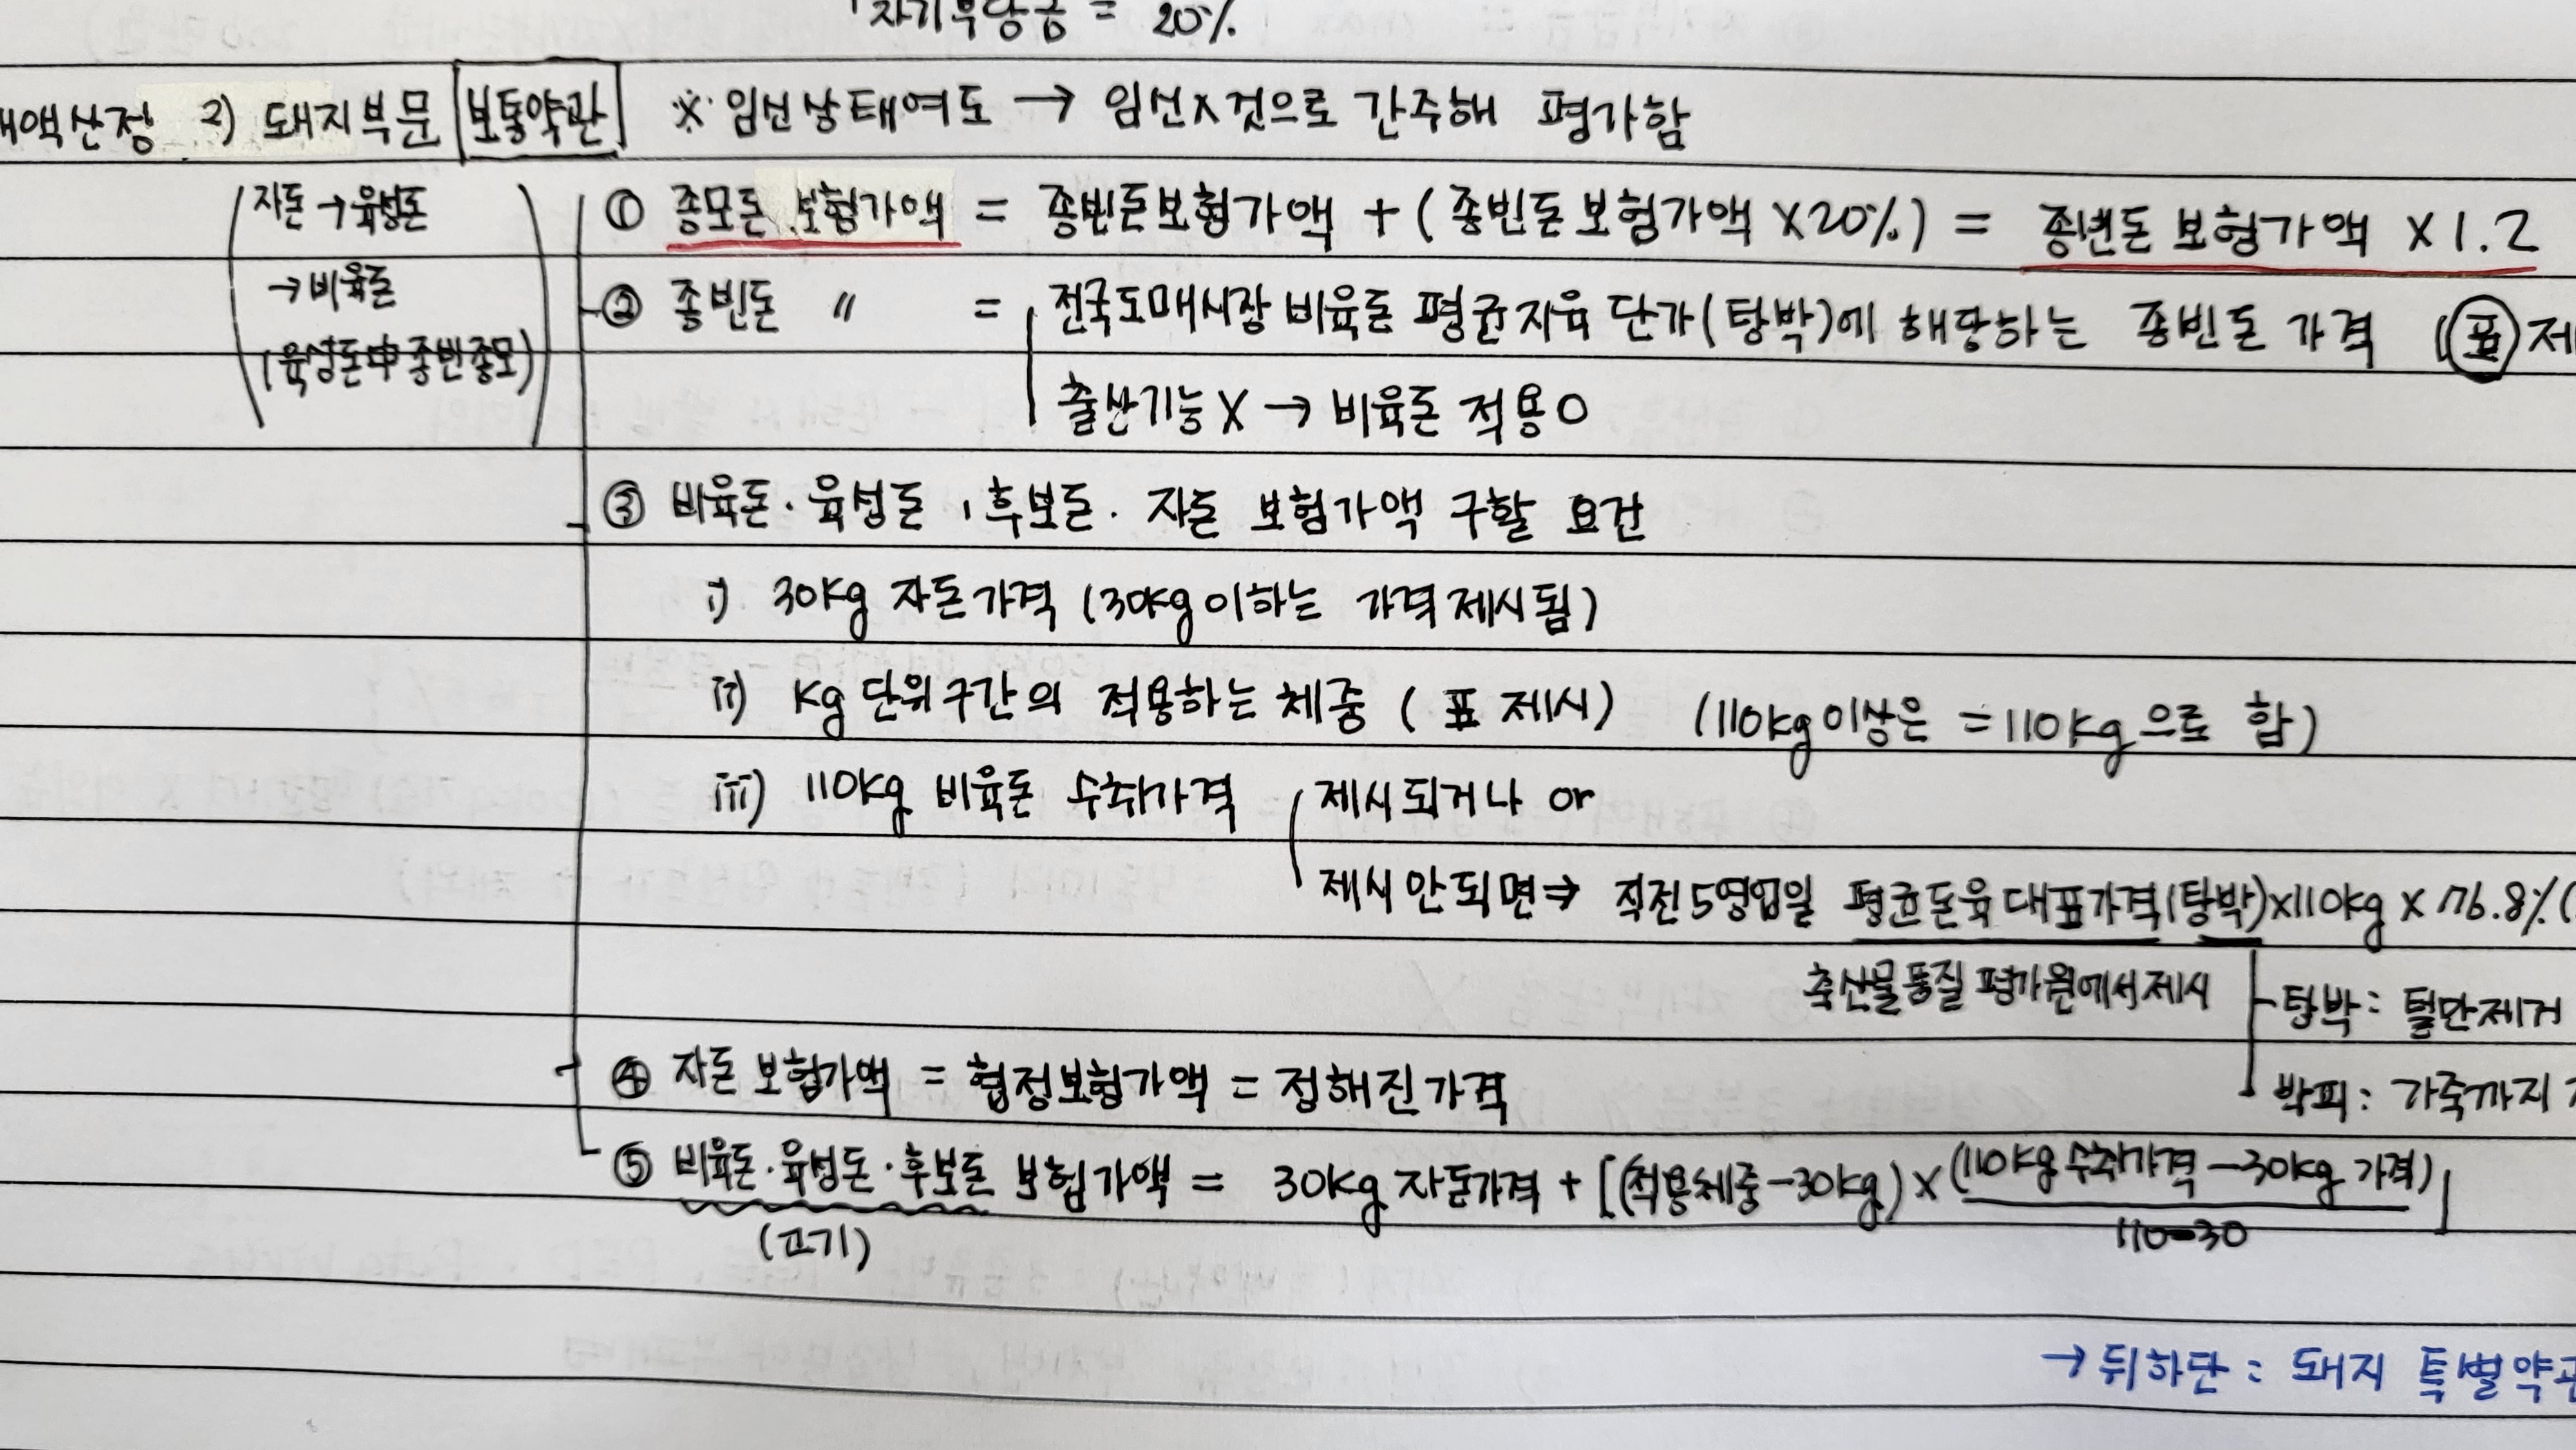 자기부담금 = 20%
액산정 2) 돼지부문 보통약관 ※ 임신상태여도 → 임신X것으로 간주해 평가함
자돈→육성돈
→비육돈
(육성돈中종빈종모)
① 종모돈 보험가액 = 종빈돈보험가액 + (종빈돈보험가액 ×20%) = 종빈돈 보험가액 ×1.2
② 종빈돈 〃 = 전국도매시장 비육돈 평균지육 단가(탕박)에 해당하는 종빈돈 가격 (표)제
출산기능X → 비육돈 적용O
③ 비육돈·육성돈, 후보돈· 자돈 보험가액 구할 요건
i) 30kg 자돈가격 (30kg이하는 가격제시됨)
ii) kg단위구간의 적용하는 체중 (표 제시) (110kg이상은 =110kg으로 함)
iii) 110kg 비육돈 수취가격 제시되거나 or
제시안되면⇒ 직전5영업일 평균돈육대표가격(탕박)×110kg × 76.8%(
축산물품질평가원에서제시
탕박: 털만제거
박피: 가죽까지
④ 자돈 보험가액 = 협정보험가액 = 정해진가격
⑤ 비육돈·육성돈·후보돈 보험가액 = 30kg 자돈가격 + [(적용체중-30kg)× (110kg수취가격-30kg 가격)]
110-30
(고기)
→ 뒤하단: 돼지 특별약관